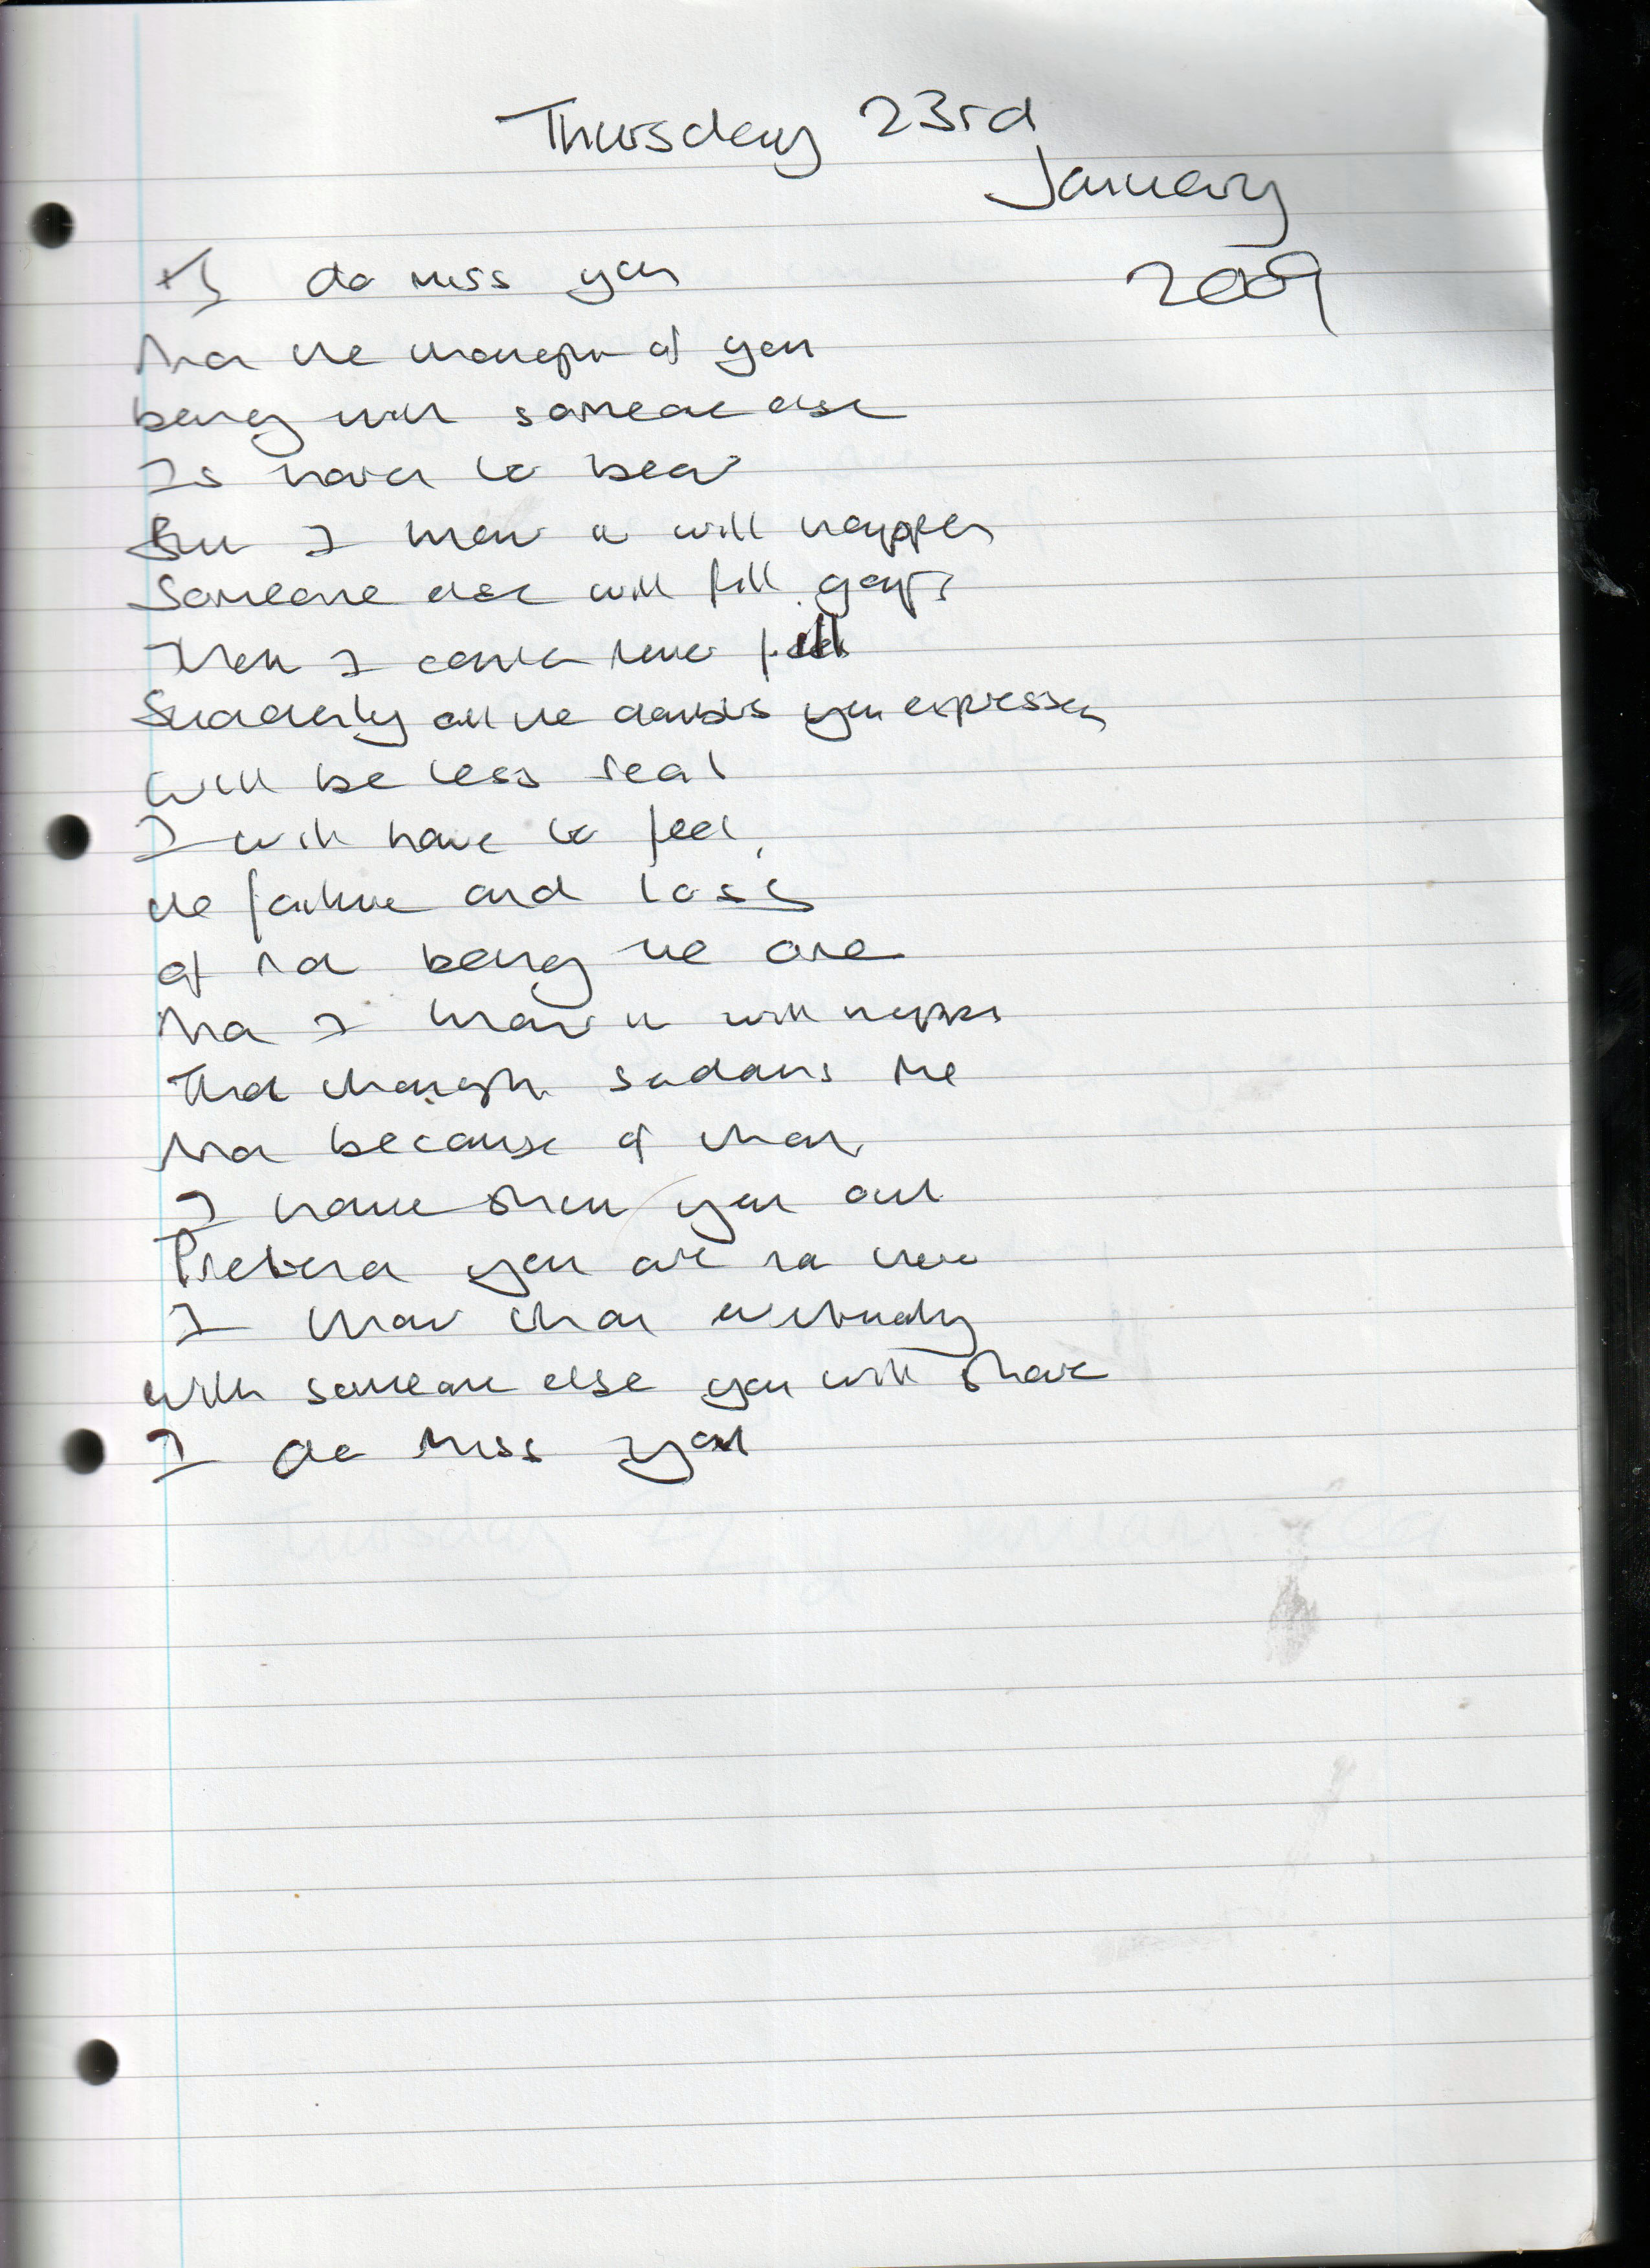 Thursday 23rd
January
2009
I do miss you
And the thought of you
being with someone else
Is hard to bear
But I know it will happen
Someone else will fill gaps
Then I could never fill
Suddenly all the doubts you expressed
will be less real
I will have to feel
the failure and loss
of not being the one
And I know it will happen
That thought saddens me
And because of that
I have shut you out
Pretend you are not there
I know that eventually
with someone else you will share
I do miss you
Thursday 22nd January 2009